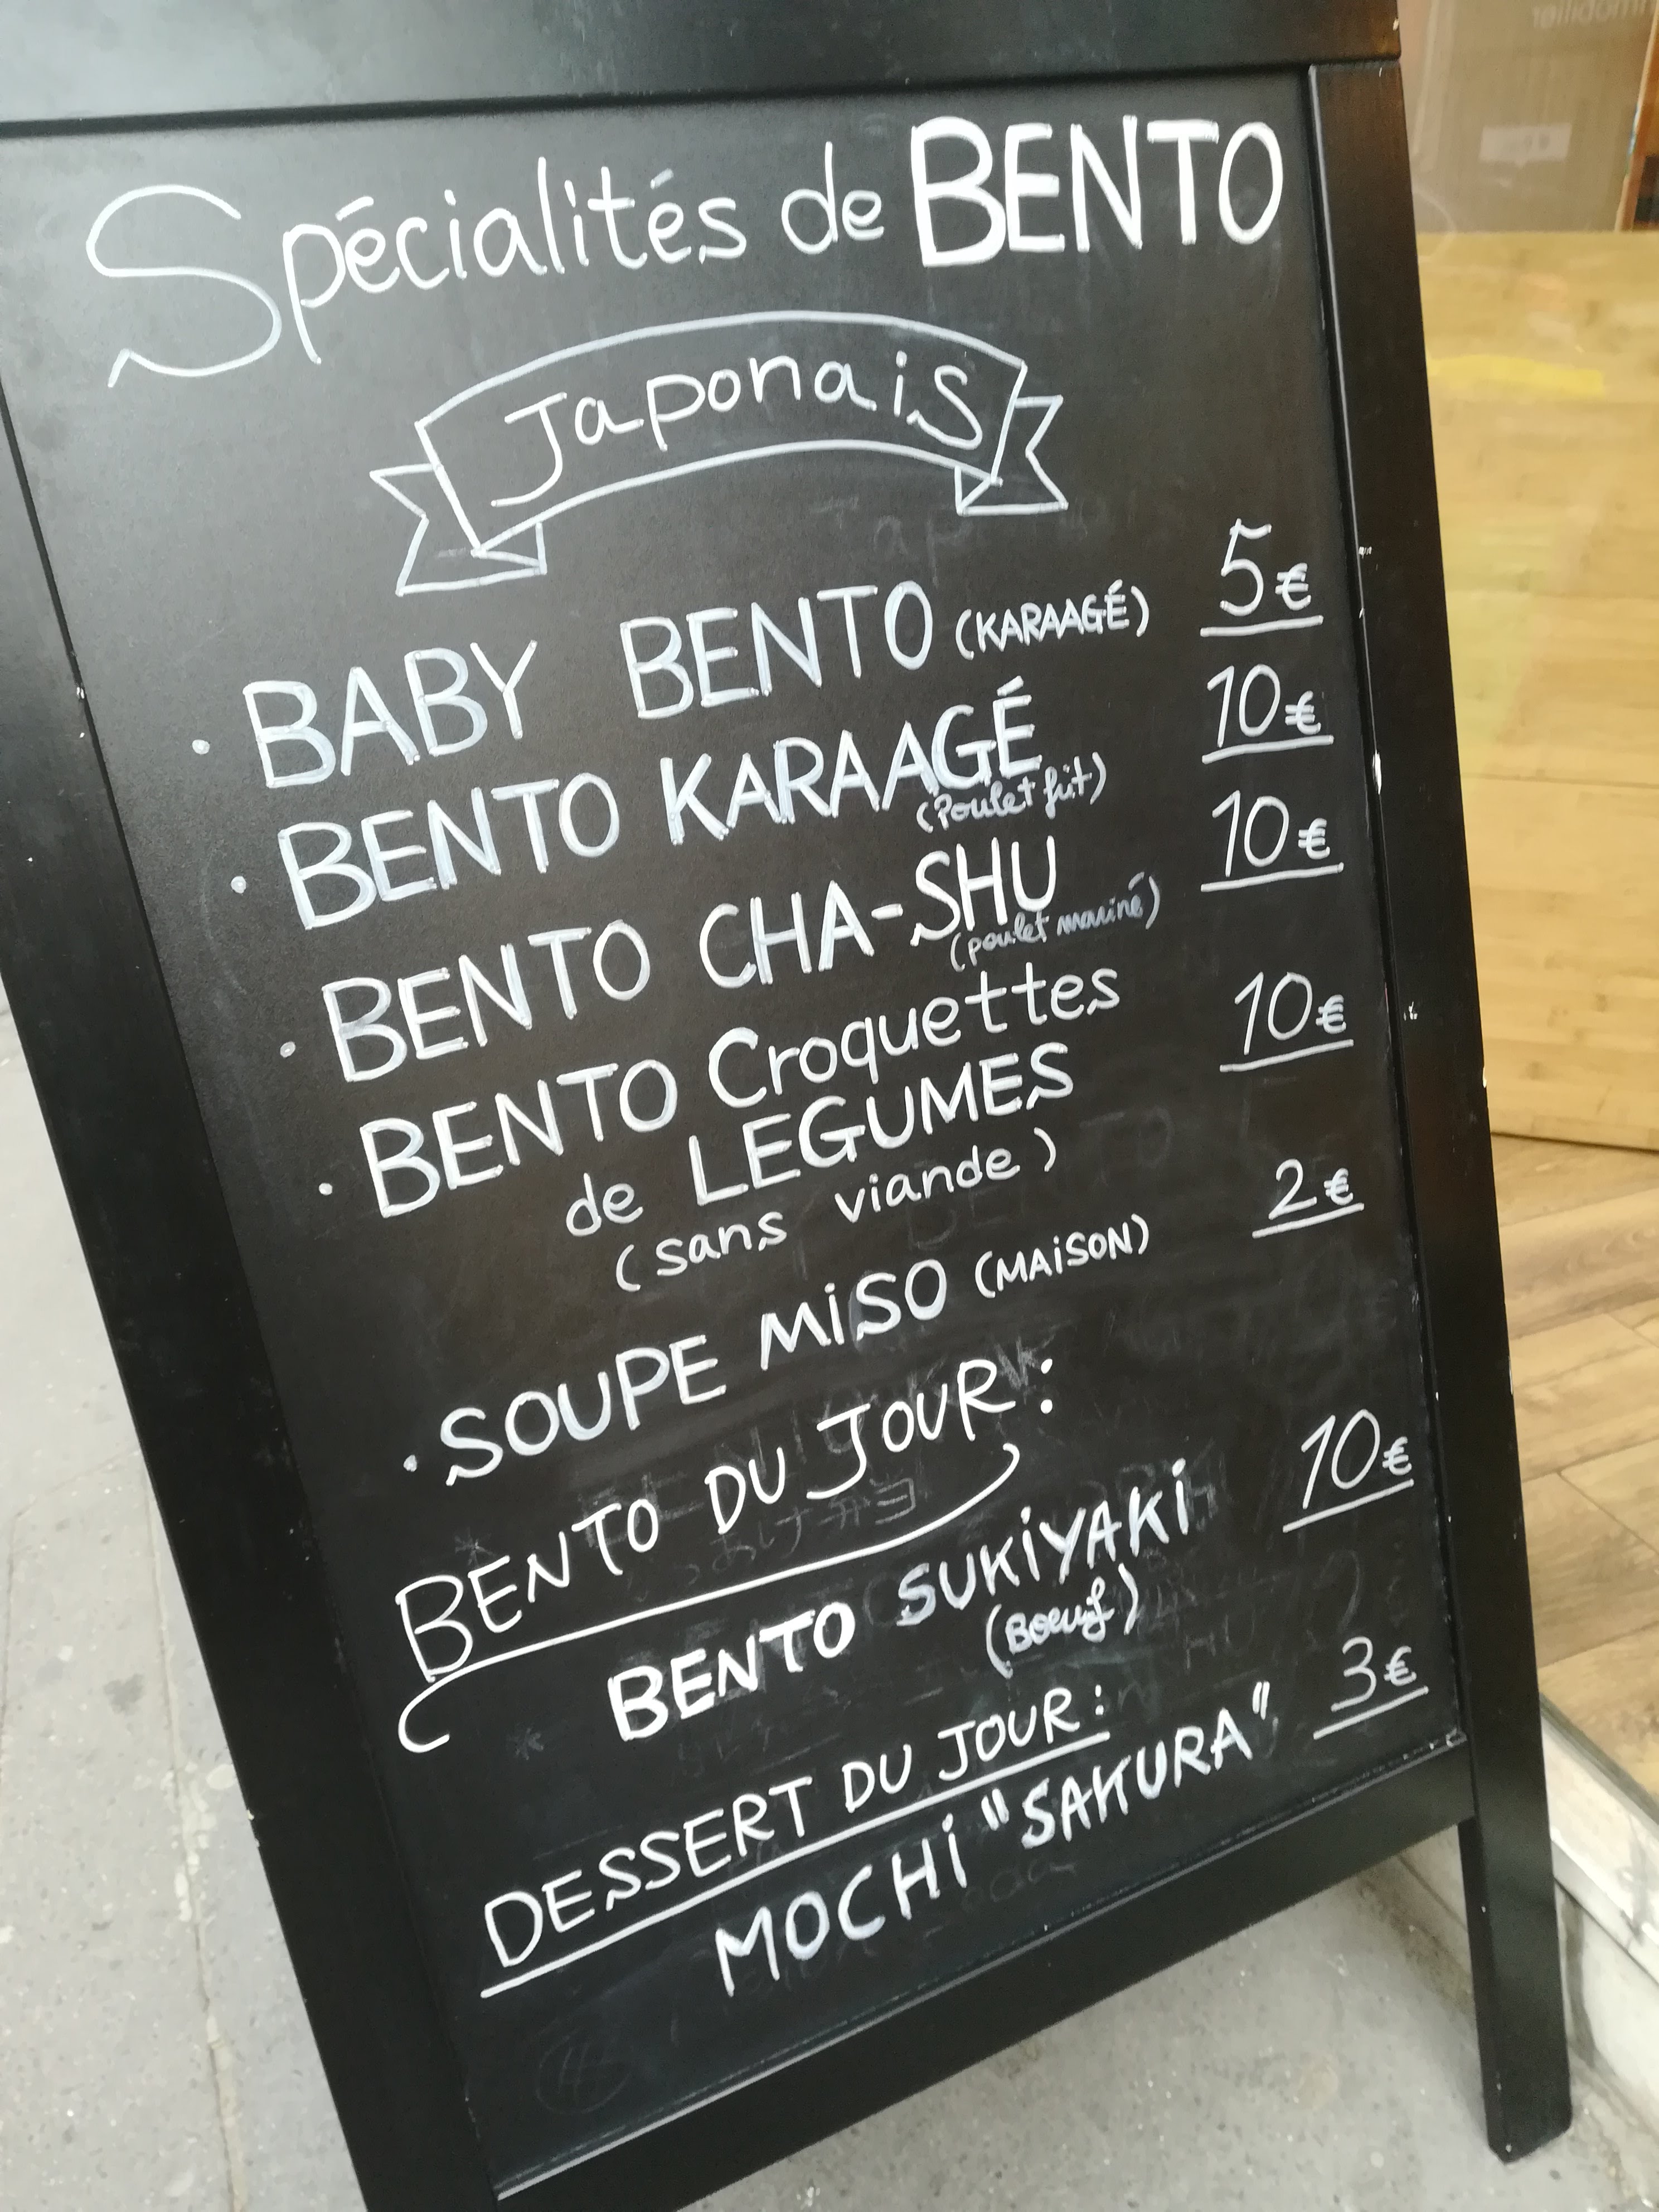 Spécialités de BENTO
Japonais
• BABY BENTO (KARAAGÉ) 5€
• BENTO KARAAGÉ 10€
(Poulet frit)
• BENTO CHA-SHU 10€
(poulet mariné)
• BENTO Croquettes 10€
de LEGUMES
(sans viande)
• SOUPE MiSO (MAiSON) 2€
BENTO DU JOUR :
BENTO SUKiYAKi 10€
(Boeuf)
DESSERT DU JOUR :
MOCHi "SAKURA" 3€